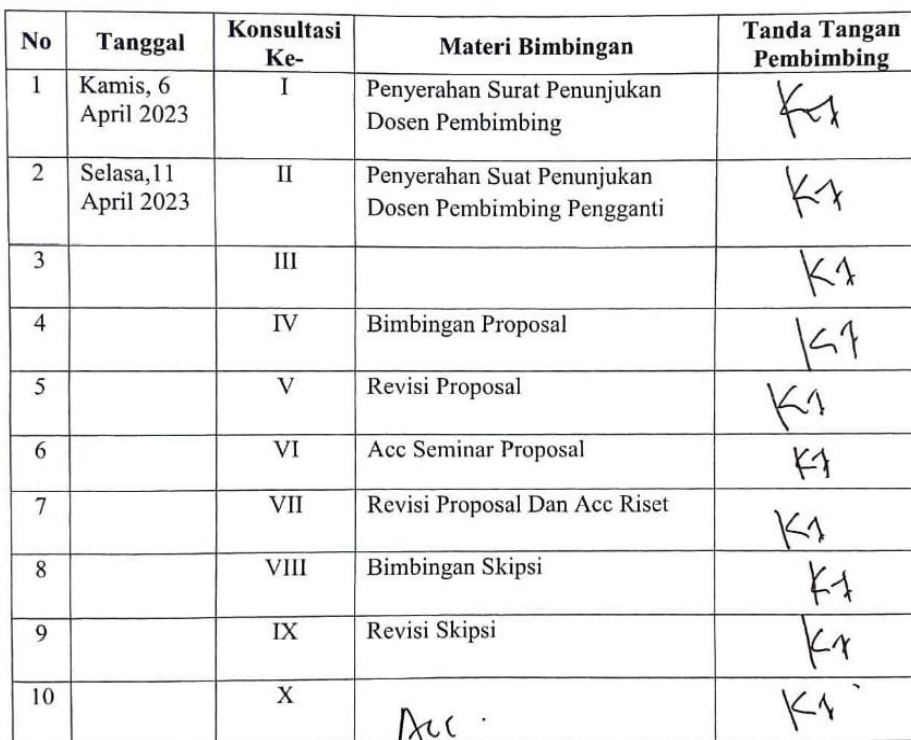 No Tanggal Konsultasi Ke- Materi Bimbingan Tanda Tangan Pembimbing
1 Kamis, 6 I Penyerahan Surat Penunjukan
April 2023 Dosen Pembimbing
2 Selasa,11 II Penyerahan Suat Penunjukan
April 2023 Dosen Pembimbing Pengganti
3 III
4 IV Bimbingan Proposal
5 V Revisi Proposal
6 VI Acc Seminar Proposal
7 VII Revisi Proposal Dan Acc Riset
8 VIII Bimbingan Skipsi
9 IX Revisi Skipsi
10 X Acc .